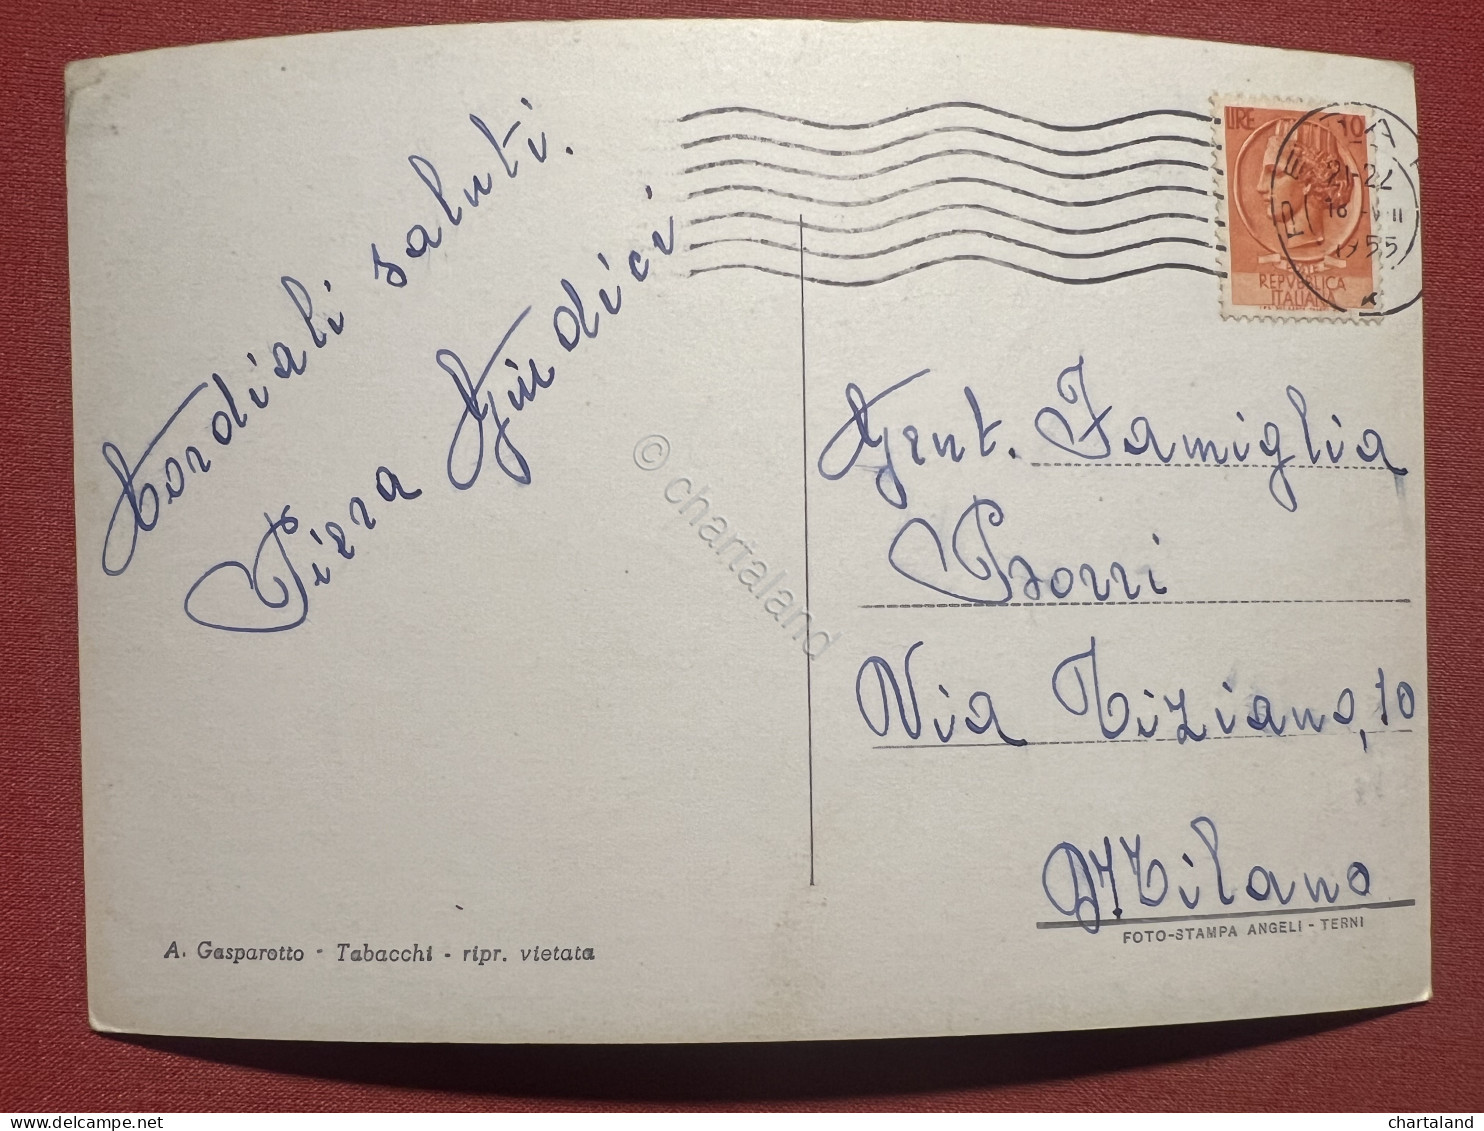 Cordiali saluti.
Piera Giudici
LIRE 10
21-22
18 -VII
1955
REPVBBLICA
ITALIANA
Gent. Famiglia
Borri
Via Tiziano, 10
Milano
FOTO-STAMPA ANGELI - TERNI
A. Gasparotto - Tabacchi - ripr. vietata
© chartaland
chartaland